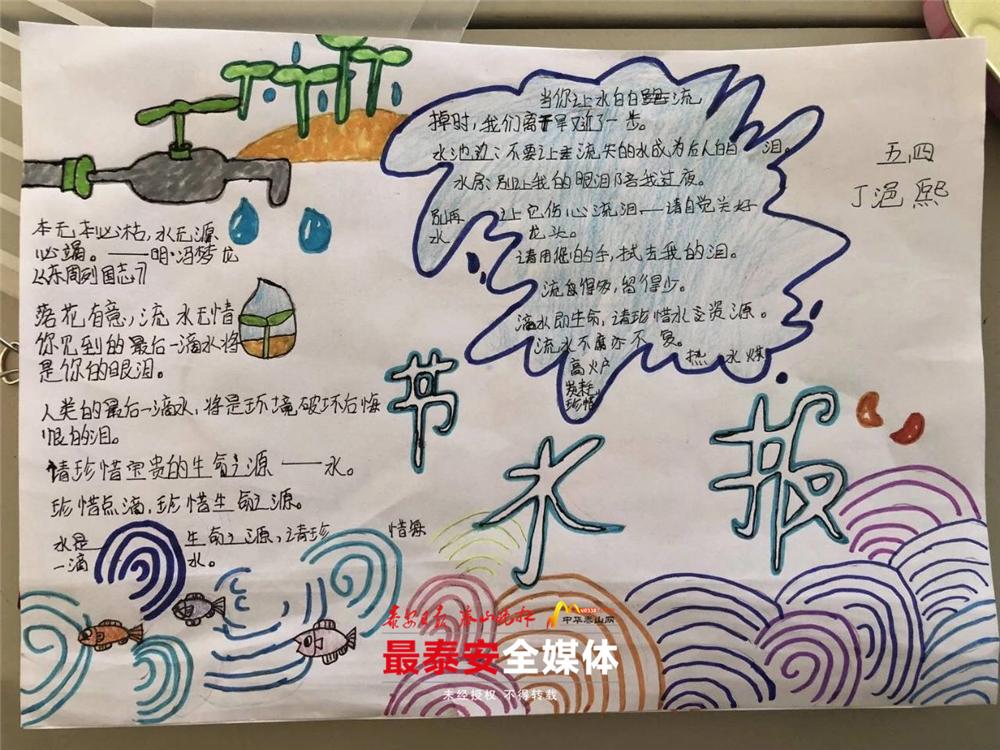 本无,本必枯,水无源
必竭。——明·冯梦龙
《东周列国志》
落花有意,流水无情
你见到的最后一滴水将
是你的眼泪。
人类的最后一滴水,将是环境破坏后悔
恨的泪。
请珍惜宝贵的生命之源——水。
珍惜点滴,珍惜生命之源。
水是 生命之源,请珍 惜每
一滴 水。
当你让水白白 流
掉时,我们离 早又近了一步。
水池边:不要让 流失的水成为后人的 泪。
水房:别让我的眼泪陪我过夜。
别再 让它伤心流泪——请自觉关好
水 龙头。
请用您的手,拭去我的泪。
流自得多,留得少。
滴水即生命,请珍惜水资源。
流水不腐亦不复。
高火炉 热水
珍惜
五,四
丁浥熙
节水报
泰安日报 泰山晚报
中华泰山网
最泰安全媒体
未经授权 不得转载